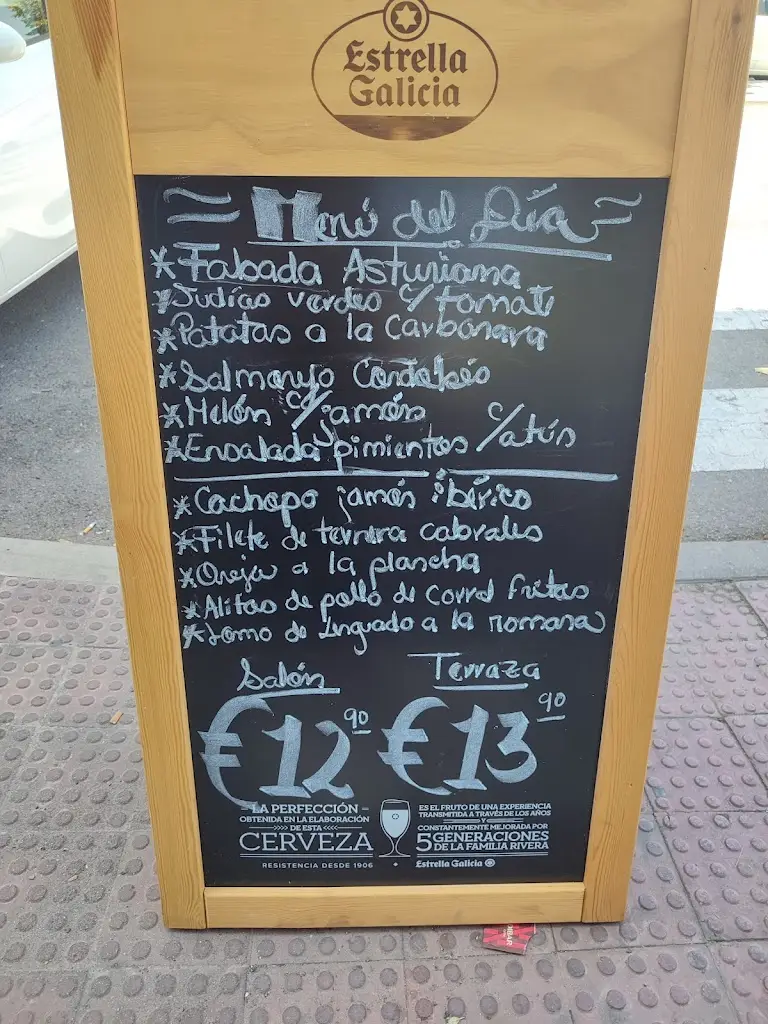 Estrella
Galicia
Menú del Día
*Fabada Asturiana
*Judías verdes c/tomate
*Patatas a la Carbonara
*Salmorejo Cordobés
*Melón c/jamón
*Ensalada pimientos y c/atún
*Cachopo jamón ibérico
*Filete de ternera cabrales
*Oreja a la plancha
*Alitas de pollo de corral fritas
*Lomo de Lenguado a la romana
Salón Terraza
€12,90 €13,90
LA PERFECCIÓN
OBTENIDA EN LA ELABORACIÓN
DE ESTA
CERVEZA
RESISTENCIA DESDE 1906
ES EL FRUTO DE UNA EXPERIENCIA
TRANSMITIDA A TRAVÉS DE LOS AÑOS
Y
CONSTANTEMENTE MEJORADA POR
5 GENERACIONES
DE LA FAMILIA RIVERA
Estrella Galicia